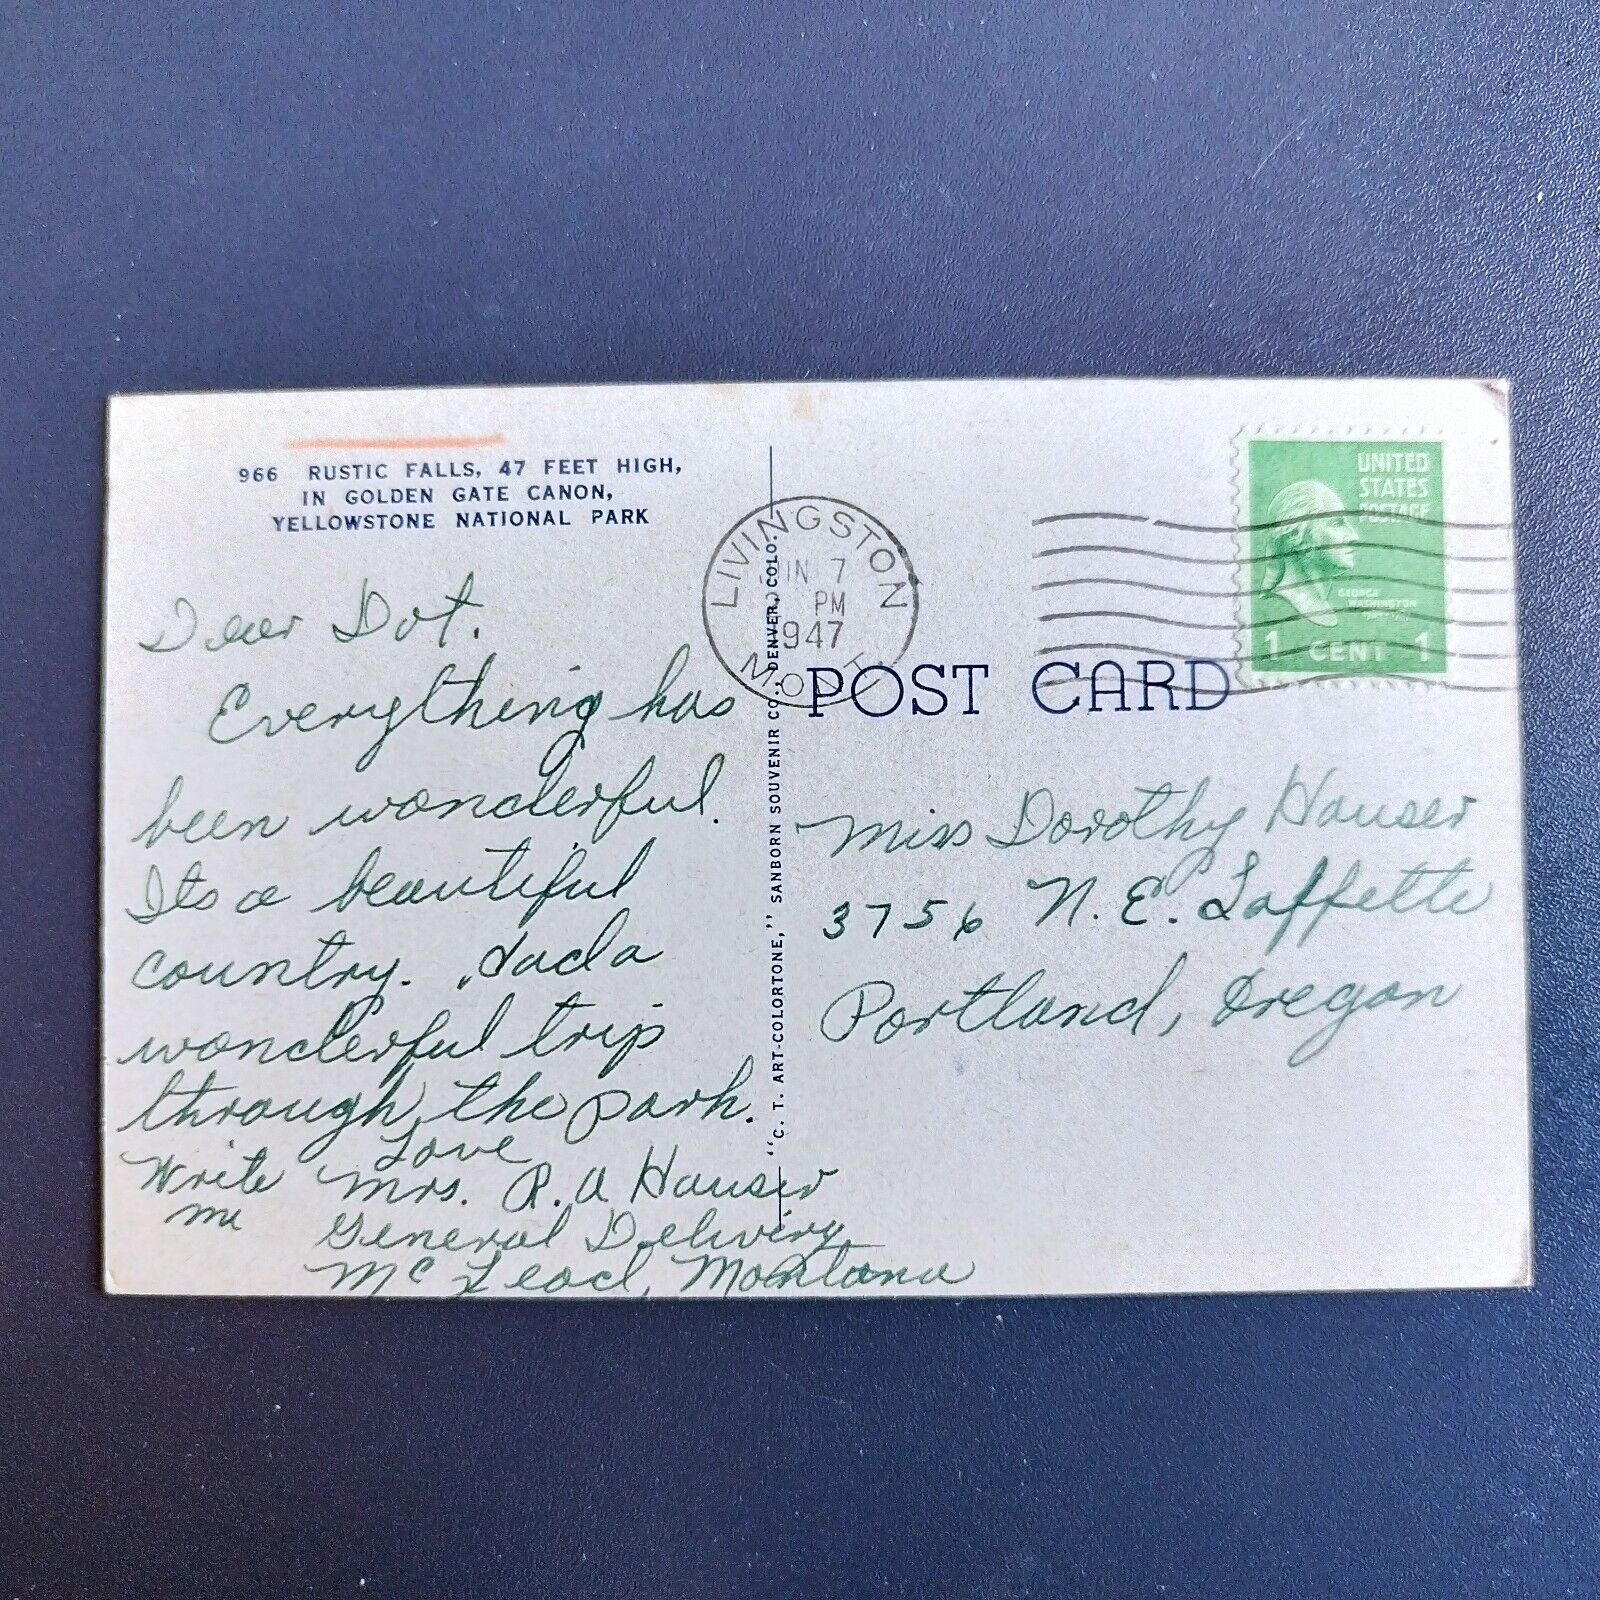 966 RUSTIC FALLS, 47 FEET HIGH,
IN GOLDEN GATE CANON,
YELLOWSTONE NATIONAL PARK
Dear Dot.
Everything has
been wonderful.
Its a beautiful
country. Had a
wonderful trip
through the park.
Love
Write Mrs. R. A Hauser
me
General Delivery
McLeod, Montana
"C. T. ART-COLORTONE," SANBORN SOUVENIR CO., DENVER, COLO.
LIVINGSTON
JUN 7
PM
1947
MONT.
UNITED
STATES
POSTAGE
GEORGE
WASHINGTON
1 CENT 1
POST CARD
Miss Dorothy Hauser
3756 N. E. Laffette
Portland, Oregon